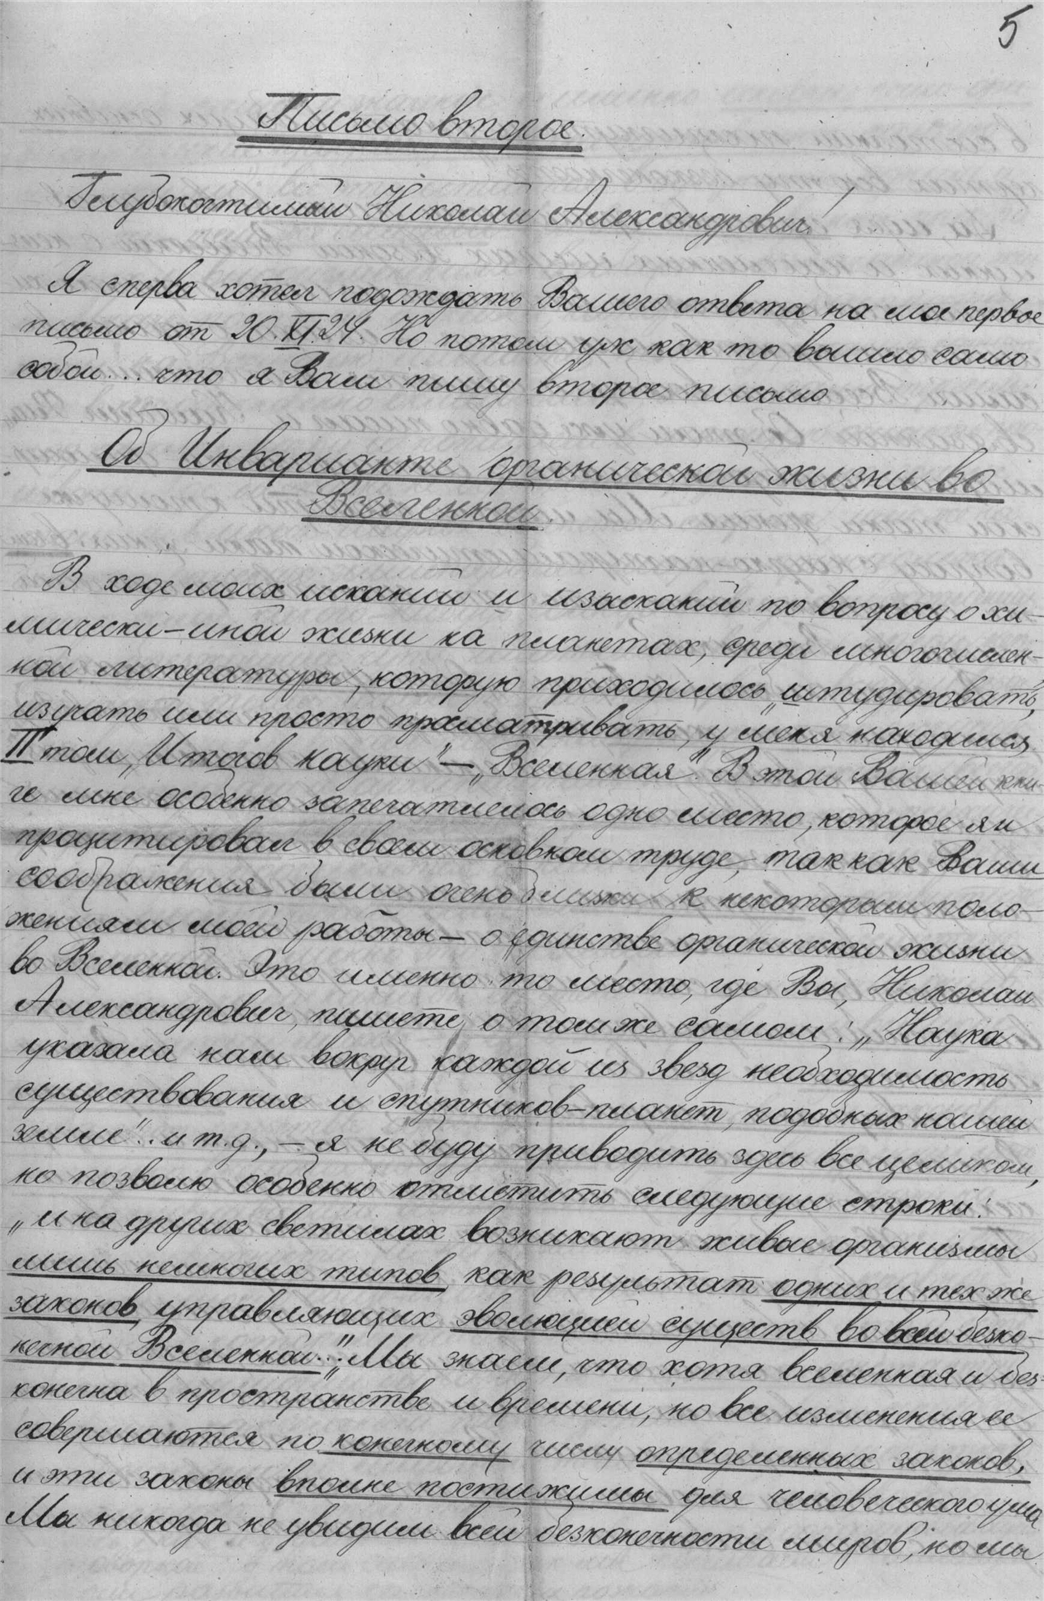 5
Письмо второе.
Глубокочтимый Николай Александрович!
Я сперва хотел подождать Вашего ответа на мое первое
письмо от 20.XI.24. Но потом уж как то вышло само
собой... что я Вам пишу второе письмо
Об Инварианте органической жизни во
Вселенной.
В ходе моих исканий и изысканий по вопросу о хи-
мически-иной жизни на планетах, среди многочислен-
ной литературы, которую приходилось „штудировать,
изучать или просто просматривать, у меня находился
II том „Итогов науки" — „Вселенная". В этой Вашей кни-
ге мне особенно запечатлелось одно место, которое я и
процитировал в своем основном труде, так как Ваши
соображения были очень близки к некоторым поло-
жениям моей работы — о единстве органической жизни
во Вселенной. Это именно то место, где Вы, Николай
Александрович, пишете о том же самом: „Наука
указала нам вокруг каждой из звезд необходимость
существования и спутников-планет, подобных нашей
земле".. и т.д., — я не буду приводить здесь все целиком,
но позволю особенно отметить следующие строки:
„и на других светилах возникают живые организмы
лишь немногих типов, как результат одних и тех же
законов, управляющих эволюцией существ во всей безко-
нечной Вселенной.." „Мы знаем, что хотя вселенная и без-
конечна в пространстве и времени, но все изменения ее
совершаются по конечному числу определенных законов,
и эти законы вполне постижимы для человеческого ума.
Мы никогда не увидим всей безконечности миров, но мы